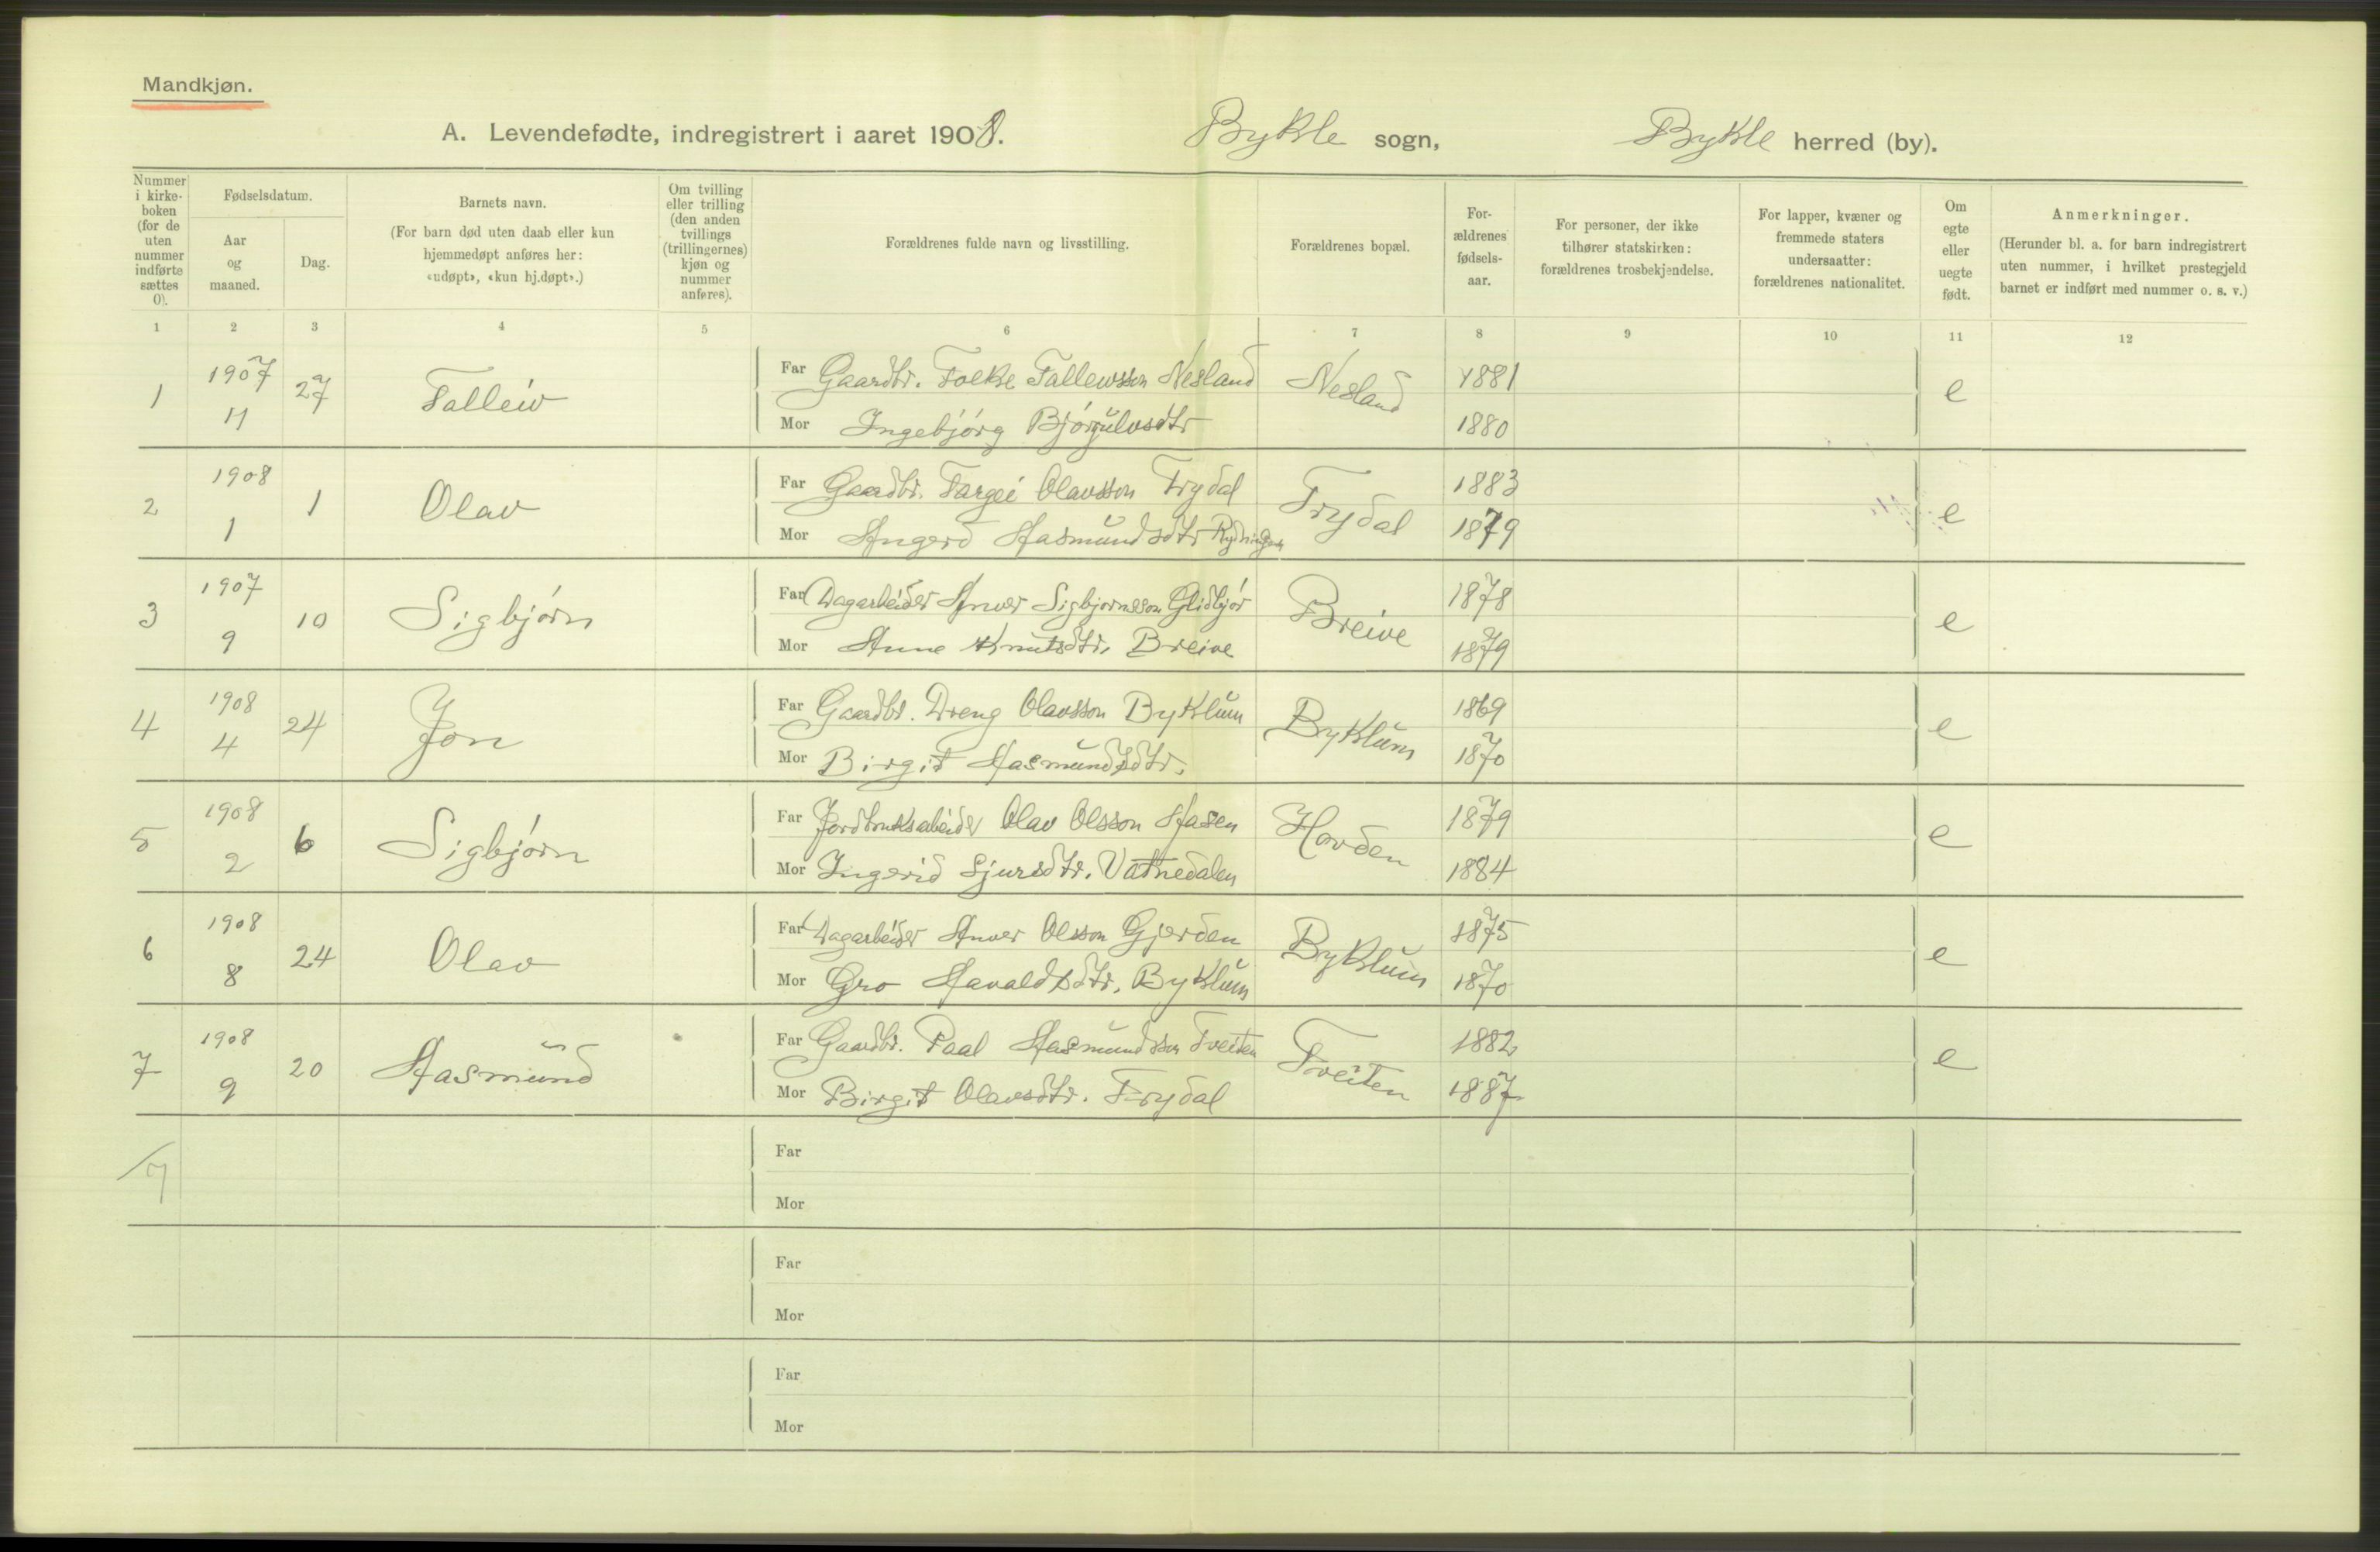 Mandkjøn.
A. Levendefødte, indregistrert i aaret 1908. Bykle sogn, Bykle herred (by).
Nummer i kirke-boken (for de uten nummer indførte sættes 0).
Fødselsdatum.
Aar og maaned.
Dag.
Barnets navn.
(For barn død uten daab eller kun hjemmedøpt anføres her: «udøpt», «kun hj.døpt».)
Om tvilling eller trilling (den anden tvillings (trillingernes) kjøn og nummer anføres).
Forældrenes fulde navn og livsstilling.
Forældrenes bopæl.
For-ældrenes fødsels-aar.
For personer, der ikke tilhører statskirken: forældrenes trosbekjendelse.
For lapper, kvæner og fremmede staters undersaatter: forældrenes nationalitet.
Om egte eller uegte født.
Anmerkninger.
(Herunder bl. a. for barn indregistrert uten nummer, i hvilket prestegjeld barnet er indført med nummer o. s. v.)
1 2 3 4 5 6 7 8 9 10 11 12
1 1907 11 27 Talleiv Far Gaardbr. Folke Tallewsson Nesland Nesland 1881 e
Mor Ingebjórg Bjórgulvsdtr 1880
2 1908 1 1 Olav Far Gaardbr. Targei Olavsson Trydal Trydal 1883 e
Mor Angerd Aasmundsdtr Rydningen 1879
3 1907 9 10 Sigbjórn Far Dagarbeider Anver Sigbjornsson Glidbjór Breive 1878 e
Mor Anne Knutsdtr. Breive 1879
4 1908 4 24 Jon Far Gaardbr. Dreng Olavsson Byklum Byklum 1869 e
Mor Birgit Aasmundsdtr. 1870
5 1908 2 6 Sigbjórn Far Jordbruksabeider Olav Olsson Aasen Hovden 1879 e
Mor Ingerid Sjursdtr. Vatnedalen 1884
6 1908 8 24 Olav Far Dagarbeider Anver Olsson Gjerden Byklum 1875 e
Mor Gro Havaldsdtr. Byklum 1870
7 1908 9 20 Aasmund Far Gaardbr. Paal Aasmundsson Tveiten Tveiten 1882 e
Mor Birgit Olavsdtr. Trydal 1887
7 Far
Mor
Far
Mor
Far
Mor